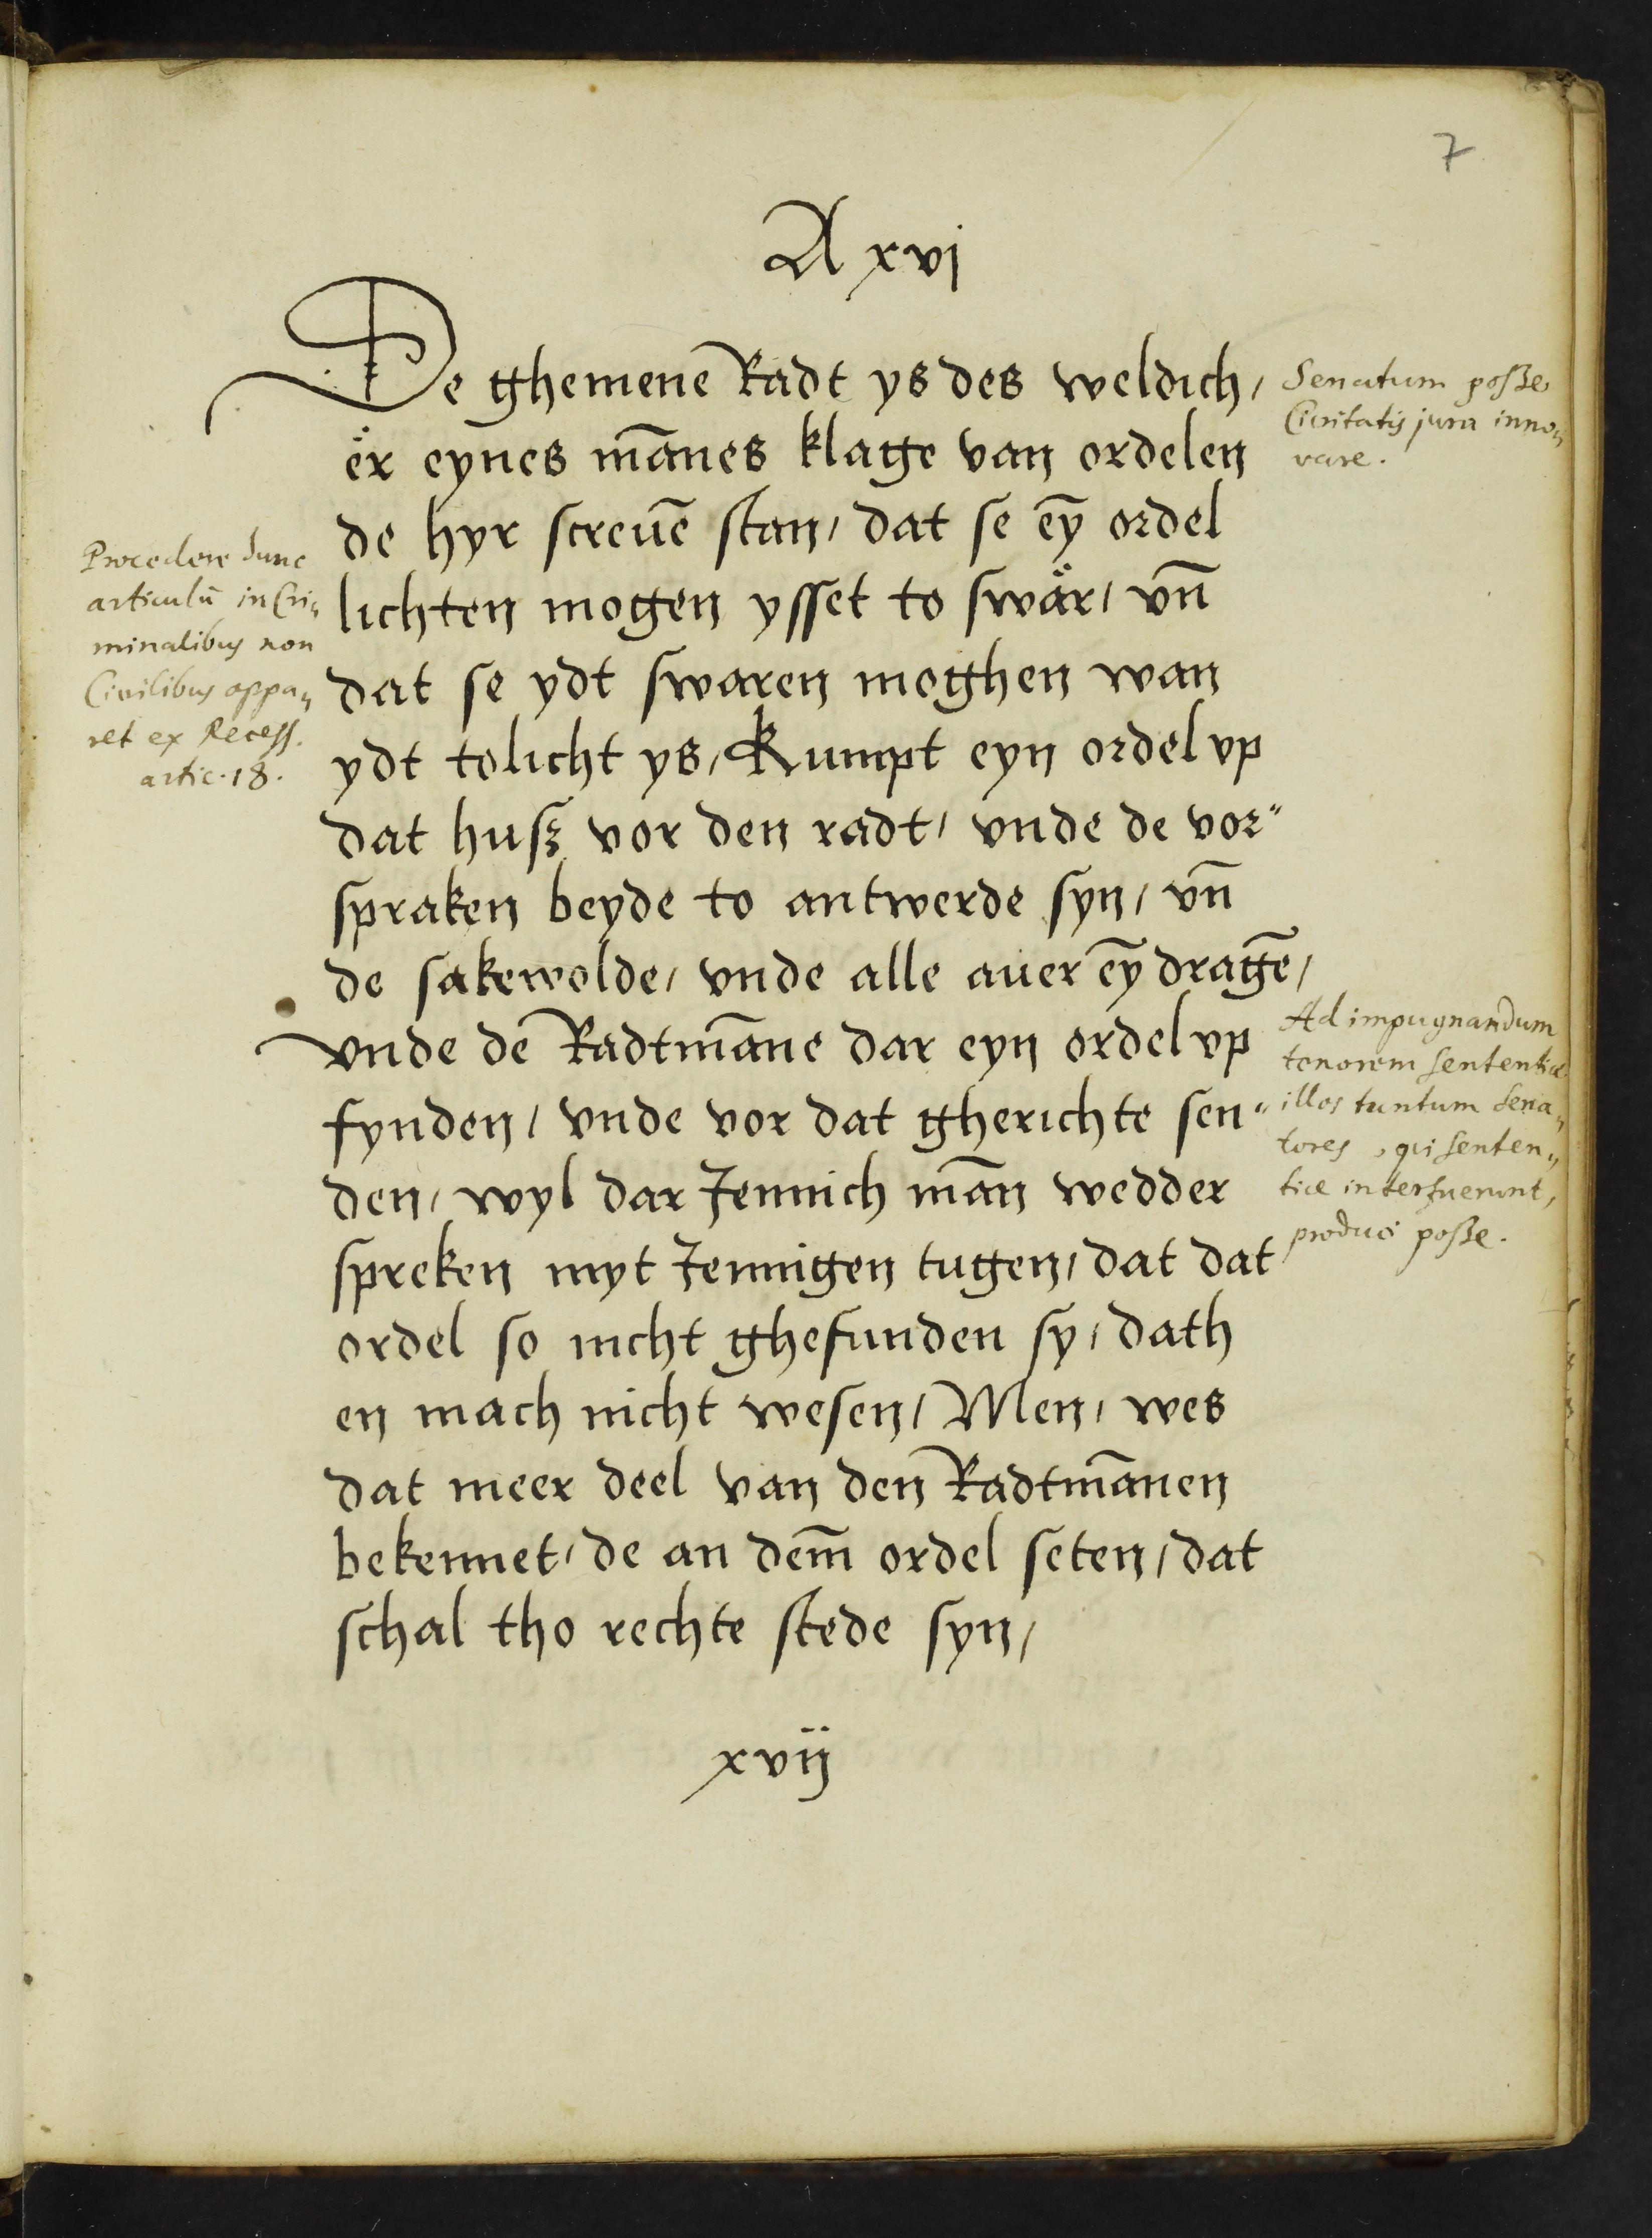 7
A xvj
De ghemene Radt ys des weldich /
ër eynes mānes klage van ordelen
de hyr screuē stan / dat se eȳ ordel
lichten mogen ysset to swär / vn̄
dat se ydt swaren moghen wan
ydt tolicht ys / Kumpt eyn ordel vp
dat husz vor den radt / vnde de vor"
spraken beyde to antwerde syn / vn̄
de sakewolde / vnde alle auer eȳ dragē /
vnde de Radtmāne dar eyn ordel vp
fynden / vnde vor dat gherichte sen"
den / wyl dar Jennich mān wedder
spreken myt Jennigen tugen / dat dat
ordel so nicht ghefunden sy / dath
en mach nicht wesen / Men / wes
dat meer deel van den Radtmānen
bekennet / de an dem̄ ordel seten / dat
schal tho rechte stede syn /
xvij
Senatum posse
Civitatis jura inno„
vare.
Procedere hunc
articulū in Cri„
minalibus non
Civilibus appa„
ret ex Recess.
artic. 18.
Ad impugnandum
tenorem sententiæ
illos tantum sena„
tores, qui senten„
tiæ interfuerunt,
produci posse.